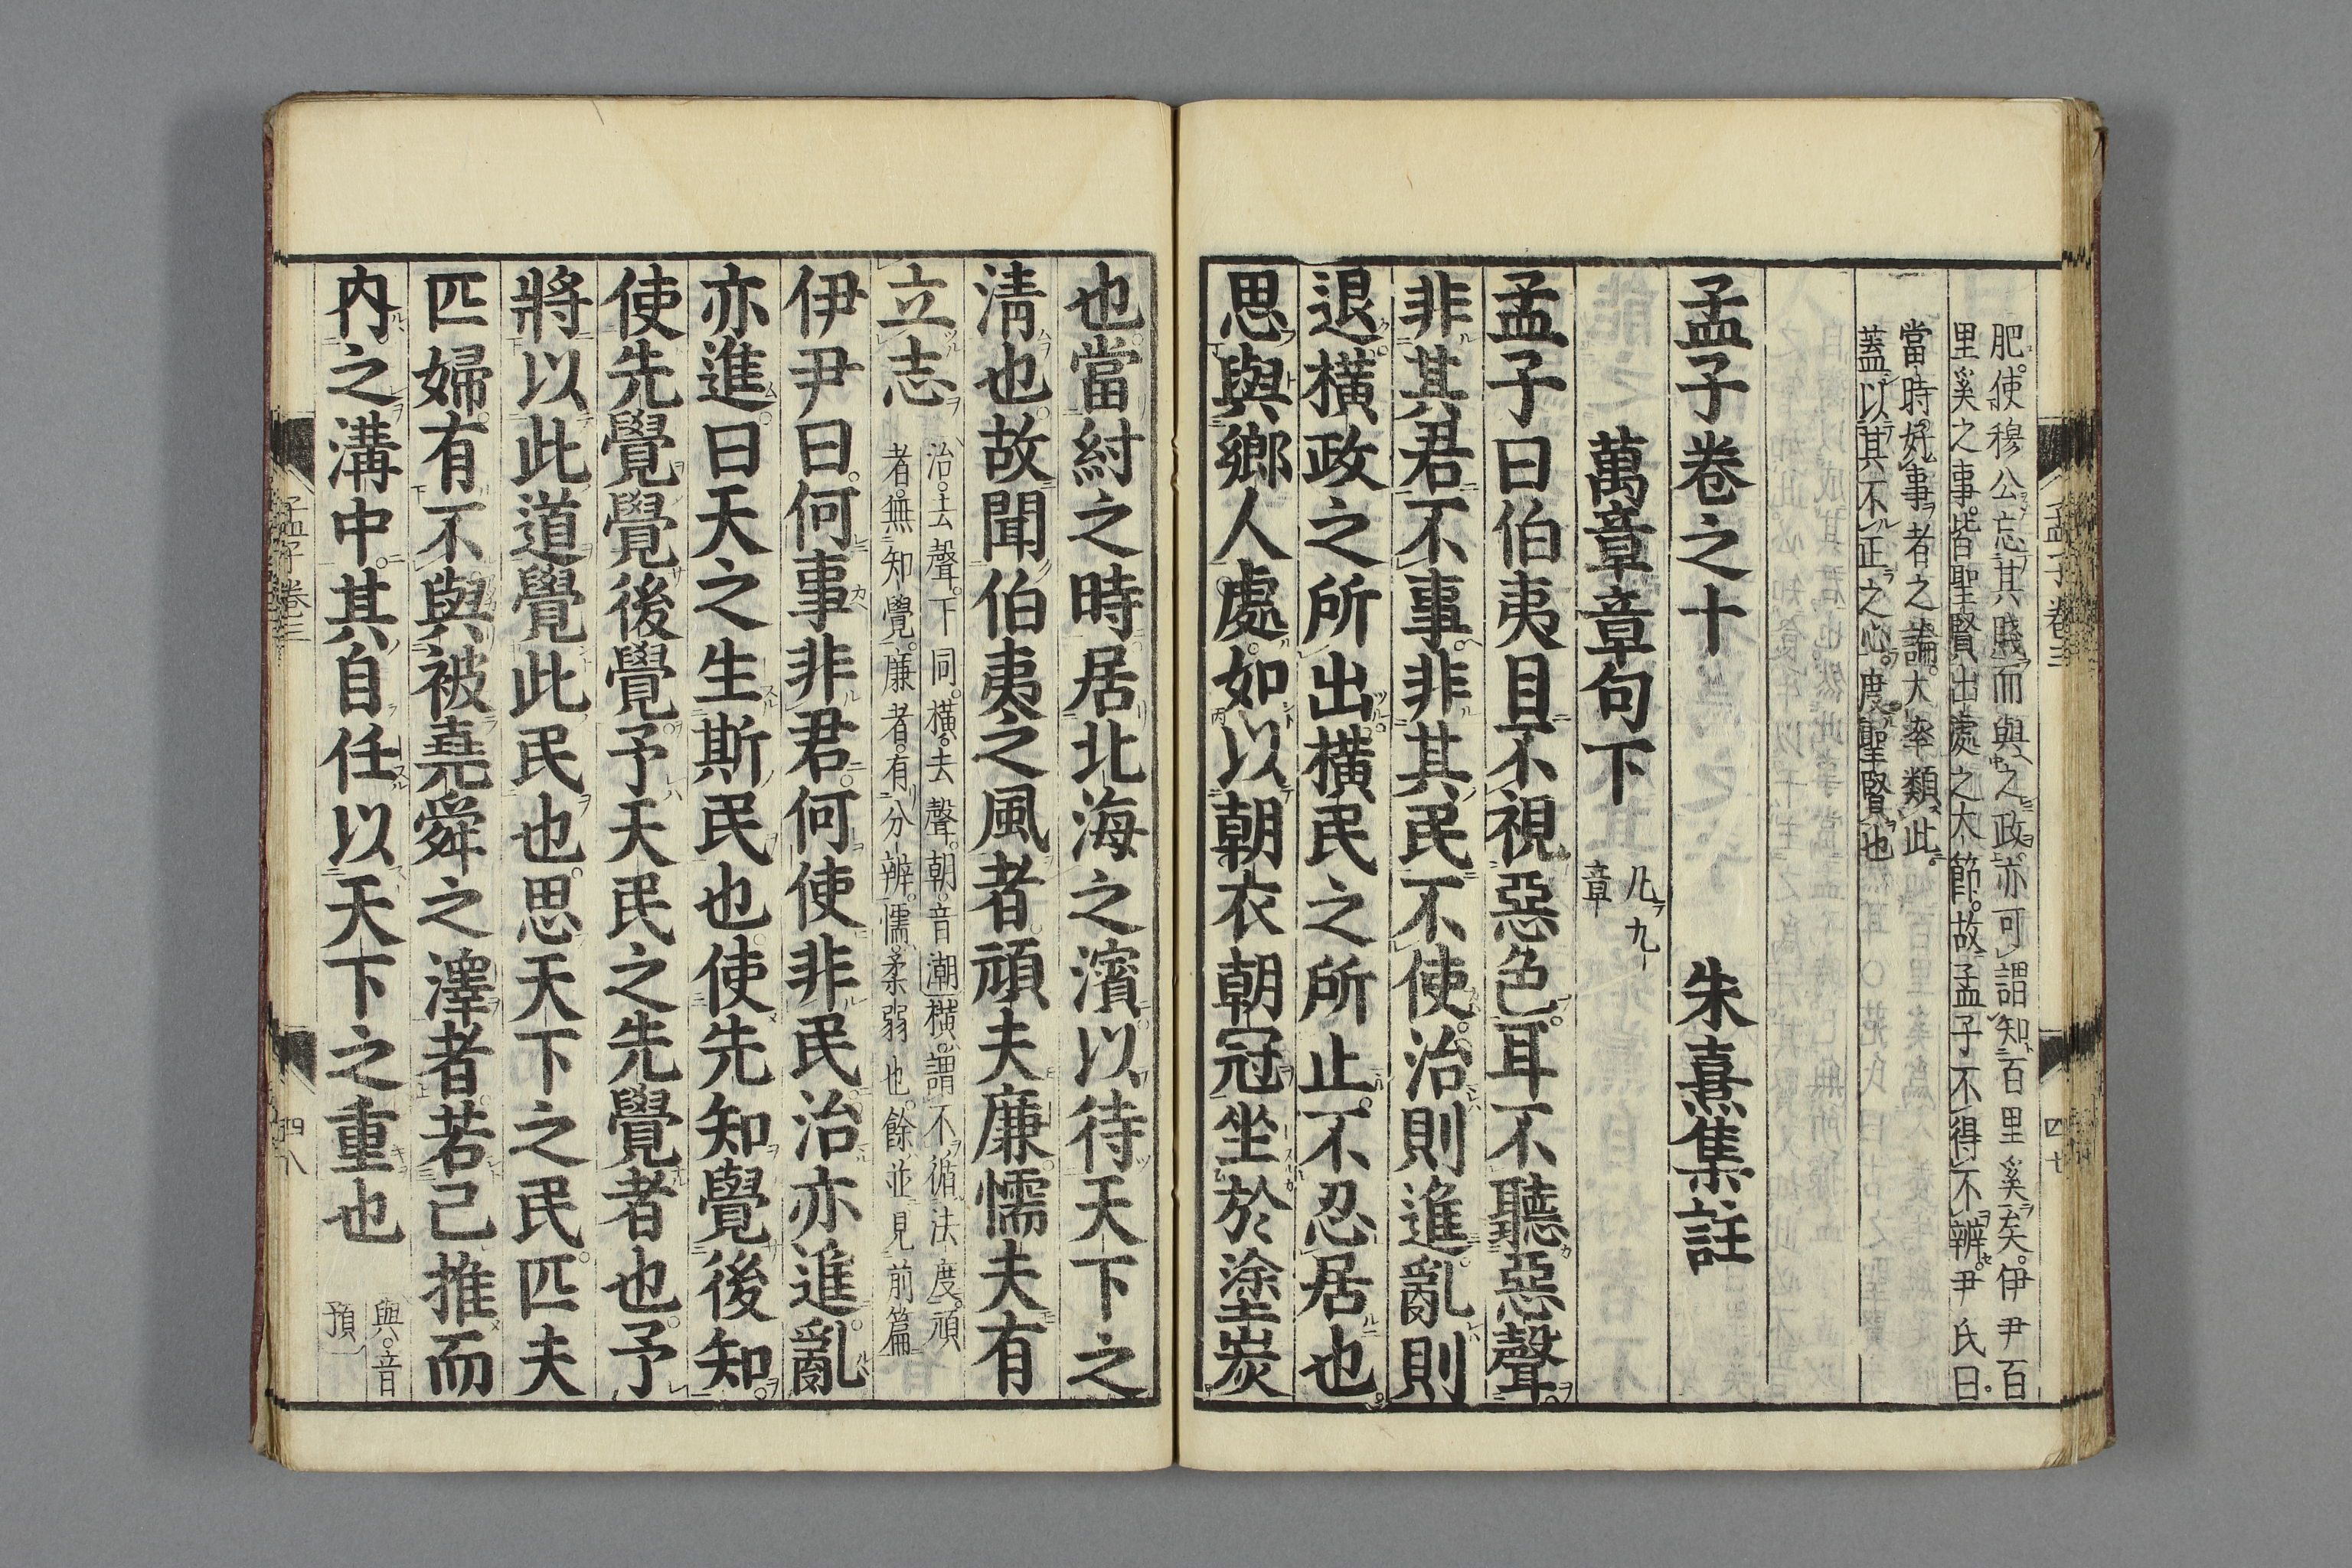 肥使穆公忘其賤而與之政亦可謂知百里奚矣伊尹百
里奚之事皆聖賢出處之大節故孟子不得不辨尹氏曰
當時好事者之論大率類此
蓋以其不正之心度聖賢也
孟子卷之十　朱熹集註
萬章章句下
凡九
章
孟子曰伯夷目不視惡色耳不聽惡聲
非其君不事非其民不使治則進亂則
退橫政之所出橫民之所止不忍居也
思與鄉人處如以朝衣朝冠坐於塗炭
也當紂之時居北海之濱以待天下之
淸也故聞伯夷之風者頑夫廉懦夫有
立志
治去聲下同橫去聲朝音潮橫謂不循法度頑
者無知覺廉者有分辨懦柔弱也餘並見前篇
伊尹曰何事非君何使非民治亦進亂
亦進曰天之生斯民也使先知覺後知
使先覺覺後覺予天民之先覺者也予
將以此道覺此民也思天下之民匹夫
匹婦有不與被堯舜之澤者若己推而
內之溝中其自任以天下之重也
與音
預
孟子卷三
四七
孟子卷三
四八